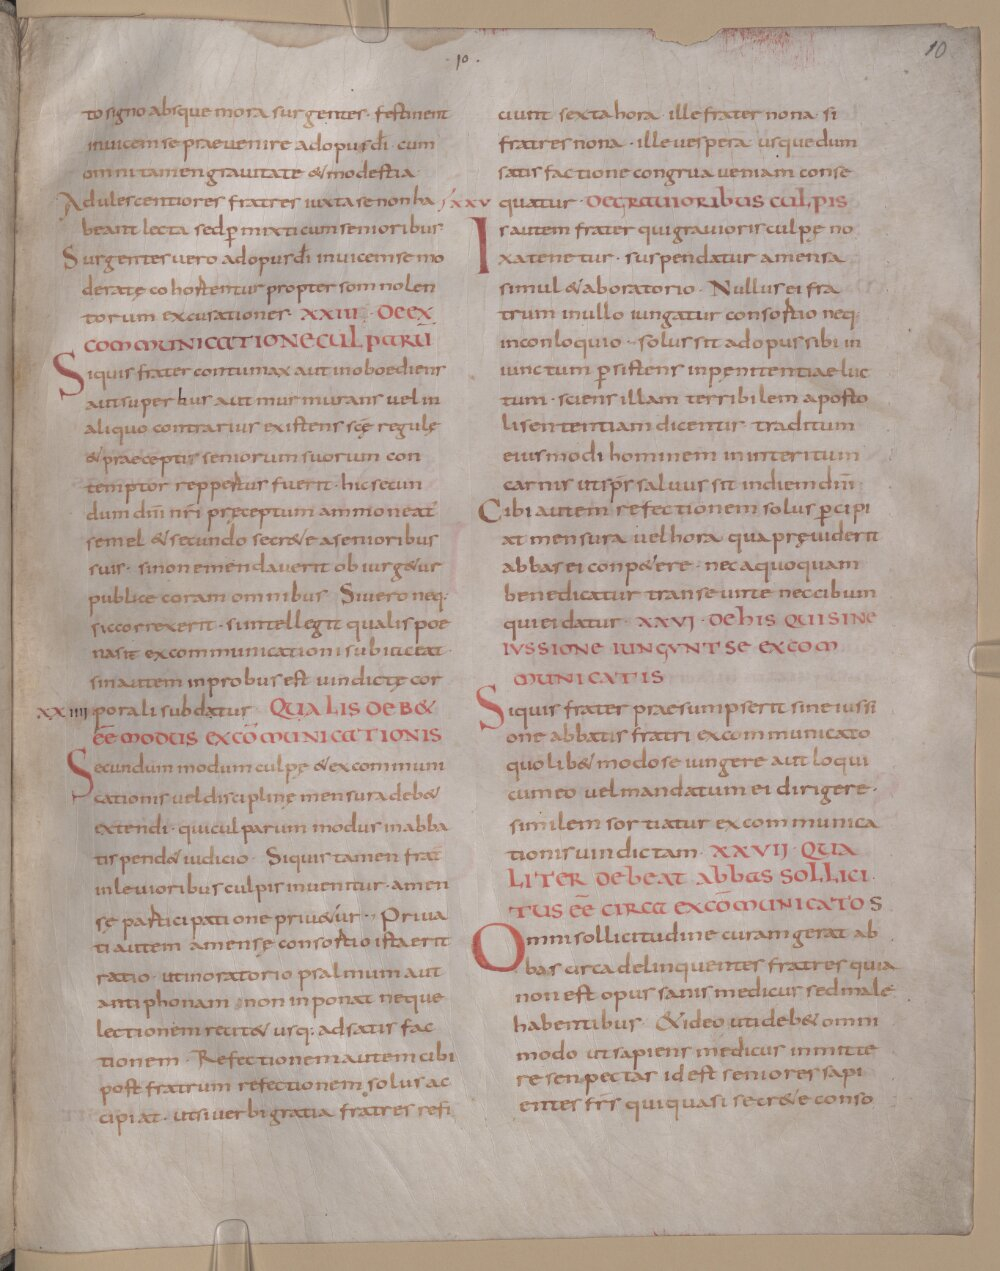 · 10 ·
10
to signo absque mora surgentes · festinent
inuicem se praeuenire ad opus dī · cum
omni tamen grauitate & modestia
Adulescentiores fratres iuxta se non ha
beant lecta sed p̄ mixti cum senioribus
Surgentes uero ad opus dī inuicem se mo
deratę cohortentur propter somnolen
torum excusationes · XXIII · DE EX
COMMUNICATIONE CULPARŪ
Siquis frater contumax aut inoboediens
aut superbus aut murmurans uel in
aliquo contrarius existens scę regulę
& praeceptis seniorum suorum con
temptor reppertus fuerit · hic secun
dum dnī nrī pręceptum ammoneat̄
semel & secundo secr&e a senioribus
suis · si non emendauerit obiurg&ur
publice coram omnibus Si uero neq·
sic correxerit · si intellegit qualis poe
na sit excommunicationi subiaceat ·
sin autem inprobus est uindictę cor
XXIIII porali subdatur QUALIS DEB&
ēē MODUS EXCŌMUNICATIONIS
Secundum modum culpę & excommuni
cationis uel disciplinę mensura deb&
extendi · qui culparum modus in abba
tis pend& iudicio Siquis tamen frat̄
in leuioribus culpis inuenitur · a men
sę participatione priu&ur · Priua
ti autem a mensę consortio ista erit
ratio · ut in oratorio psalmum aut
antiphonam non inponat neque
lectionem recit& usq; ad satisfac
tionem · Refectionem autem cibi
post fratrum refectionem solus ac
cipiat · ut si uerbi gratia fratres refi
ciunt sexta hora ille frater nona · si
fratres nona · ille uespera usque dum
satisfactione congrua ueniam conse
XXV quatur · DE GRAUIORIBUS CULPIS
Is autem frater qui grauioris culpę no
xa tenetur · suspendatur a mensa
simul & ab oratorio · Nullus ei fra
trum in ullo iungatur consortio neq·
in conloquio · solus sit ad opus sibi in
iunctum p̄sistens in penitentiae luc
tum · sciens illam terribilem aposto
li sententiam dicentis · traditum
eiusmodi hominem in interitum
carnis ut sp̄s saluus sit in diem dnī
Cibi autem refectionem solus p̄cipi
at mensura uel hora qua pręuiderit
abbas ei conp&ere · nec a quoquam
benedicatur transeunte nec cibum
qui ei datur · XXVI · DE HIS QUI SINE
IUSSIONE IUNGUNT SE EXCOM
MUNICATIS
Siquis frater praesumpserit sine iussi
one abbatis fratri excommunicato
quolib& modo se iungere aut loqui
cum eo uel mandatum ei dirigere ·
similem sortiatur excommunica
tionis uindictam · XXVII · QUA
LITER DEBEAT ABBAS SOLLICI
TUS ēē CIRCA EXCŌMUNICATOS
Omni sollicitudine curam gerat ab
bas circa delinquentes fratres quia
non est opus sanis medicus sed male
habentibus &ideo uti deb& omni
modo ut sapiens medicus inmitte
re senpectas id est seniores sapi
entes frs̄ qui quasi secr&e conso